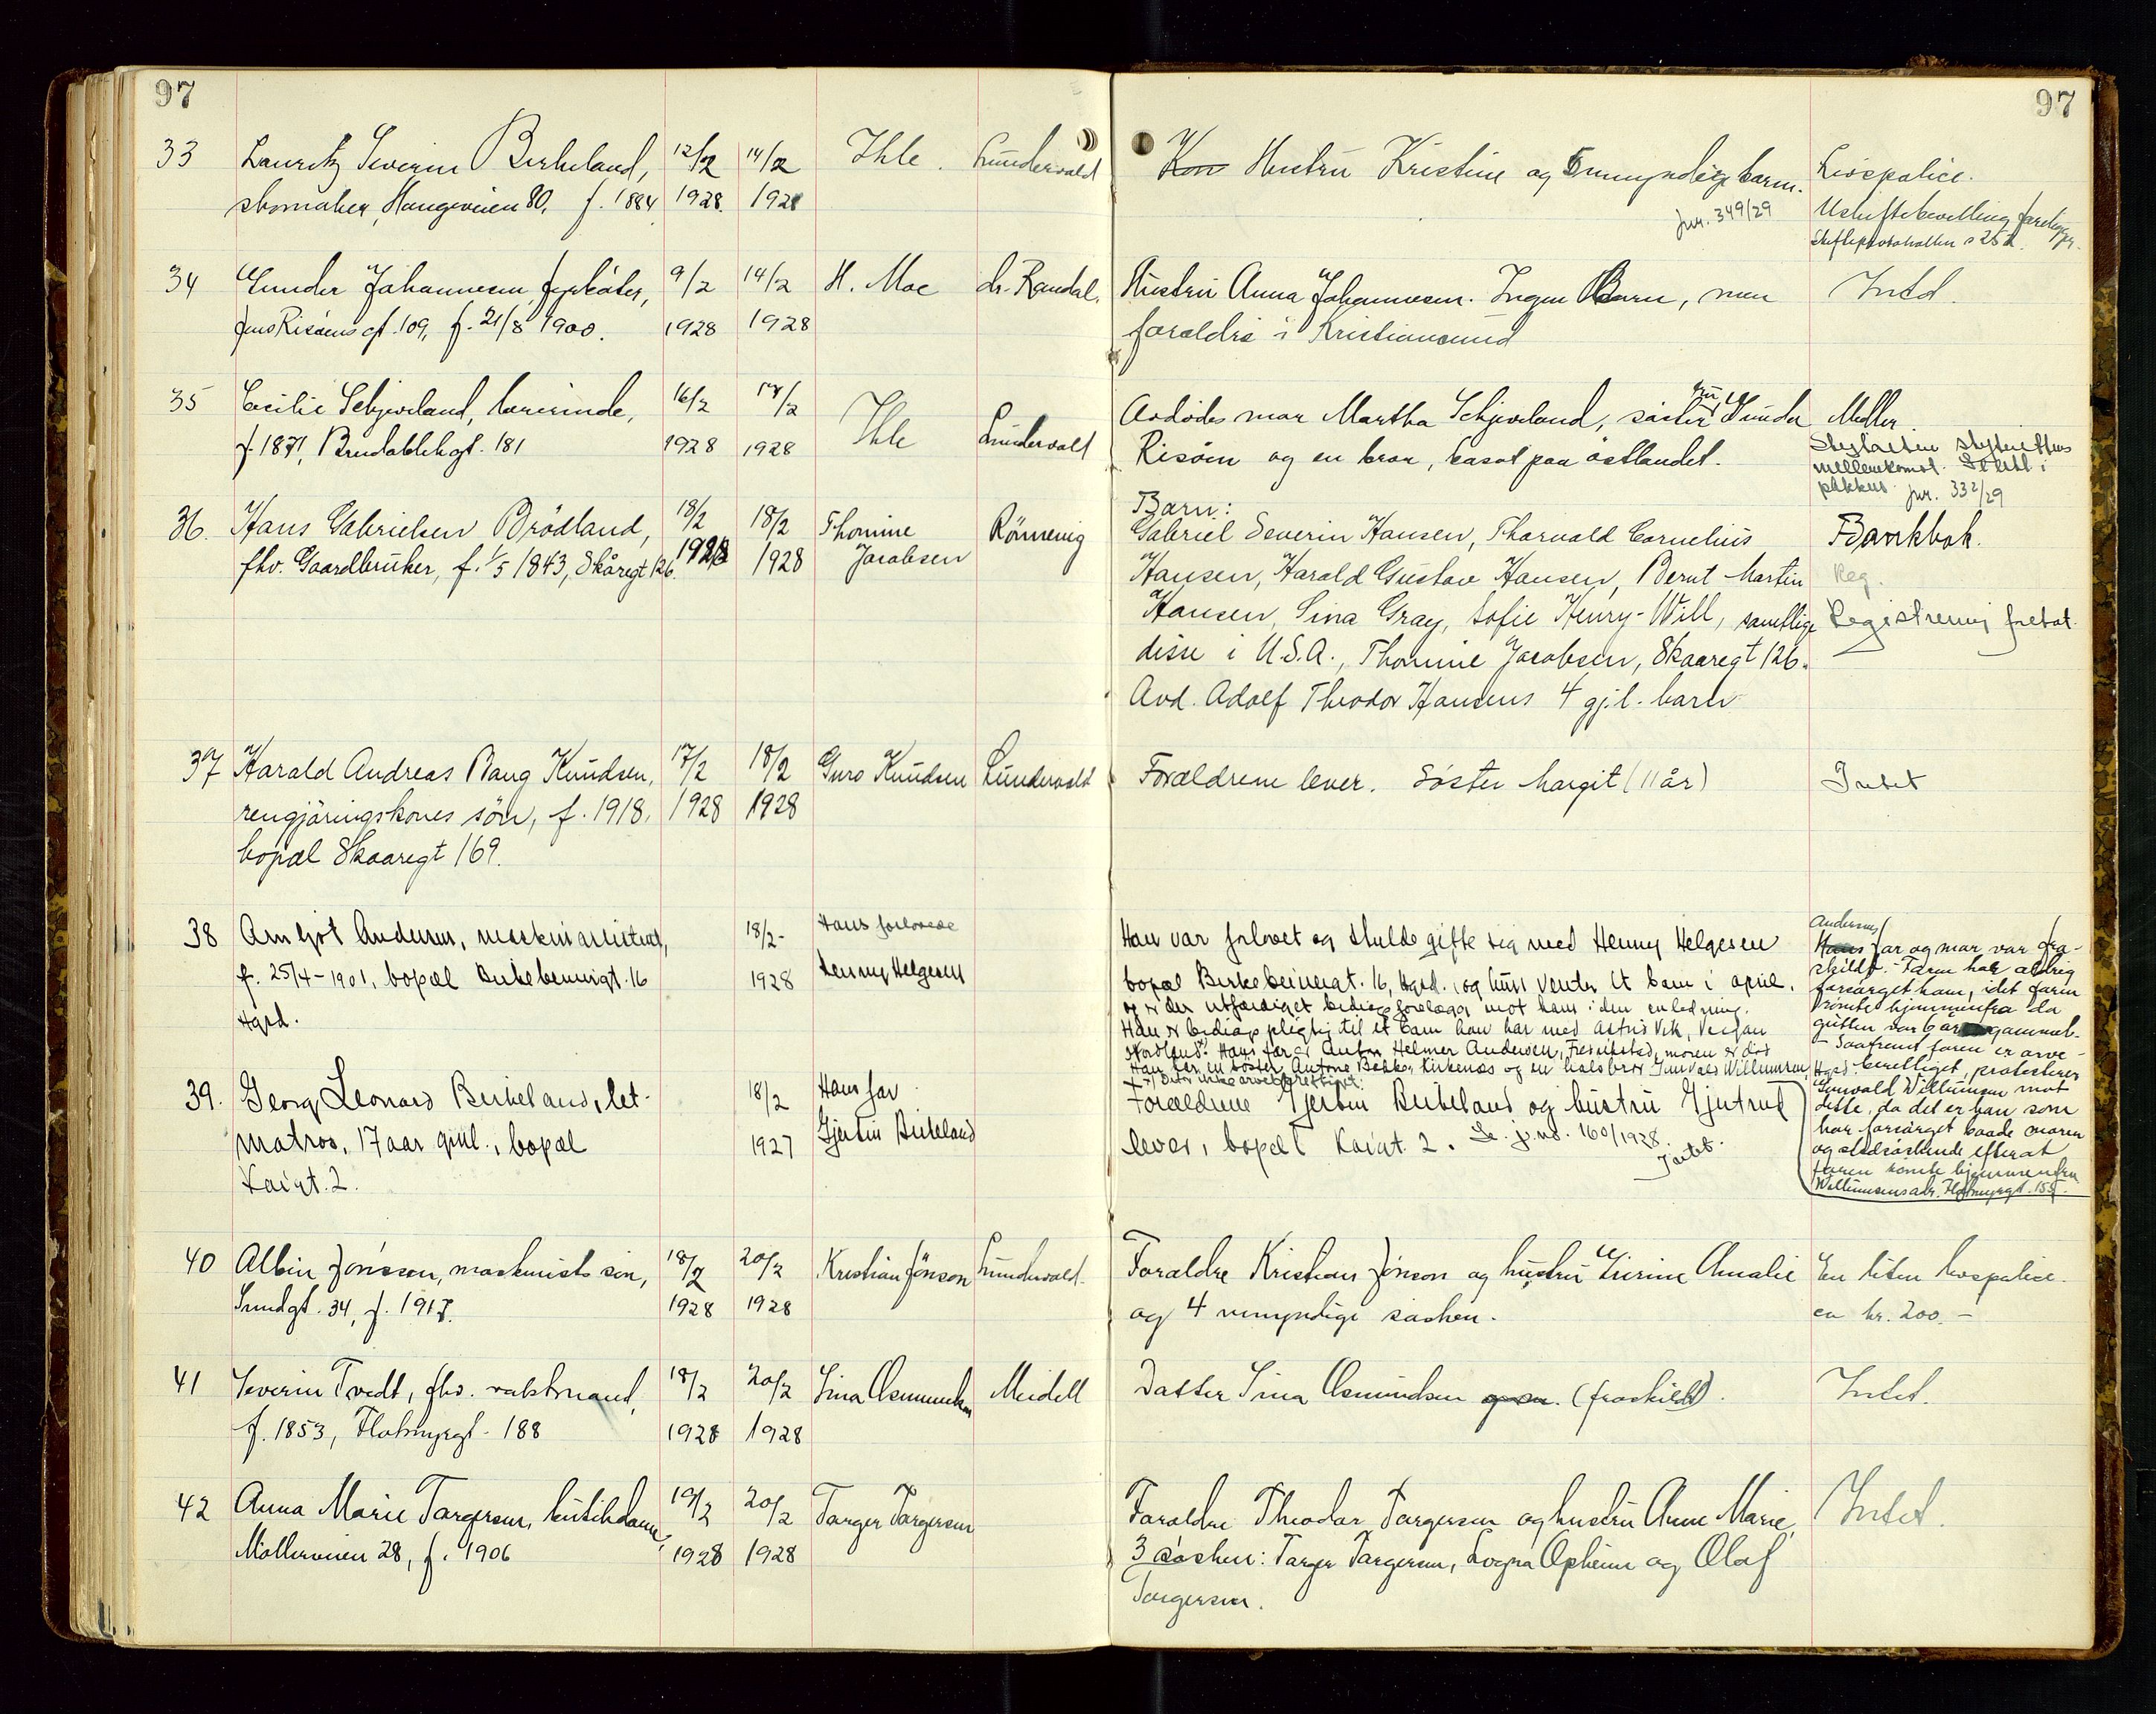 97
97
33 Lauritz Severin Birkeland, 12/2 14/2 Ihle. Lundervold
skomaker, Haugeveien 80, f. 1884 1928. 1928
Hustru Kristine og 5 umyndige barn. Livspolice.
jnr. 349/29 Uskiftebevilling foreligger.
Skifteprotokollen s 252.
34 Gunder Johannesen, fyrbøter, 9/2 14/2 H. Moe dr. Randal.
Jens Risøens gt. 109, f. 21/8 1900. 1928 1928
Hustru Anna Johannesen. Ingen Barn, men Intet.
forældre i Kristiansund
35 Cecilie Schjveland, lærerinde, 16/2 17/2 Ihle Lundervold
f. 1871, Breidablikgt. 181 1928 1928
Avdødes mor Martha Schjveland, søster fru Gunda Møbler.
Risøen og en bror, bosat paa østlandet.
mellemkomst.
pakkus. jnr. 332/29
36. Hans Gabrielsen Brödland, 18/2 18/2 Thomine Rönnevig
fhv. Gaardbruker, f. 1/5 1843, Skåregt 126. 1928 1928 Jacobsen
Barn:
Gabriel Severin Hansen, Thorvald Cornelius Bankbok.
Hansen, Harald Gustav Hansen, Bernt Martin Reg.
Hansen, Sina Gray, Sofie Henry-Will, samtlige Registrering foretat.
disse i U.S.A., Thomine Jacobsen, Skaaregt 126.
Avd. Adolf Theodor Hansens 4 gjl. barn
37 Harald Andreas Bang Knudsen, 17/2 18/2 Guro Knudsen Lundervold
rengjöringskones sön, f. 1918, 1928 1928
bopæl Skaaregt 169.
Forældrene lever. Söster Margit (11 år) Intet
38 Arnljot Andersen, maskinassistent, 18/2- Hans forlovede
f. 25/4-1901, bopæl Birkebeinergt. 16 1928 Henny Helgesen
Hgsd.
Han var forlovet og skulde gifte sig med Henny Helgesen
bopæl Birkebeinergt. 16, Hgsd., og hun venter et barn i april.
og er der utfærdiget bidragsforelæg mot ham i den anledning.
Han er bidragspligtig til et barn han har med Astrid Vik,
Nordland. Hans far er Anton Helmer Andersen, Fredrikstad, moren er død
Han har en søster Antone Bekken, Kirkenæs og en halvbror Gunvald Willumsen, Hgsd.
Andersens
far og mor var fra-
skildt. Faren har aldrig
forsørget ham, idet faren
rømte hjemmenfra da
gutten var 6 år gammel.
- Saafremt faren er arve-
berettiget, protesterer
Gunvald Willumsen mot
dette, da det er han som
har forsørget baade moren
og stedsøskende efterat
faren rømte hjemmenfra
Willumsens adr. Flotmyrgt. 155.
39. Georg Leonard Birkeland, let- 18/2 Hans far
matros, 17 aar gml., bopæl 1927 Gjertin Birkeland
Kaigt. 2.
Forældrene Gjertin Birkeland og hustru Gjertrud
lever, bopæl Kaigt. 2. Se j.nr. 160/1928. Intet.
40 Albin Jönsson, maskinists søn, 18/2 20/2 Kristian Jönson Lundervold.
Sundgt. 34, f. 1917. 1928 1928
Forældre Kristian Jönson og hustru Serine Amalie En liten livspolice.
og 4 umyndige søsken. ca kr. 200.-
41 Severin Tvedt, fhv. vaktmand, 18/2 20/2 Sina Osmundsen Meidell
f. 1853, Flotmyrgt. 188 1928 1928
Datter Sina Osmundsen (fraskildt). Intet.
42 Anna Marie Torgersen, butikdame, 19/2 20/2 Torger Torgersen
Møllerveien 28, f. 1906 1928 1928
Forældre Theodor Torgersen og hustru Anne Marie, Intet.
3 søsken: Torger Torgersen, Lovgna Opheim og Olaf
Torgersen.